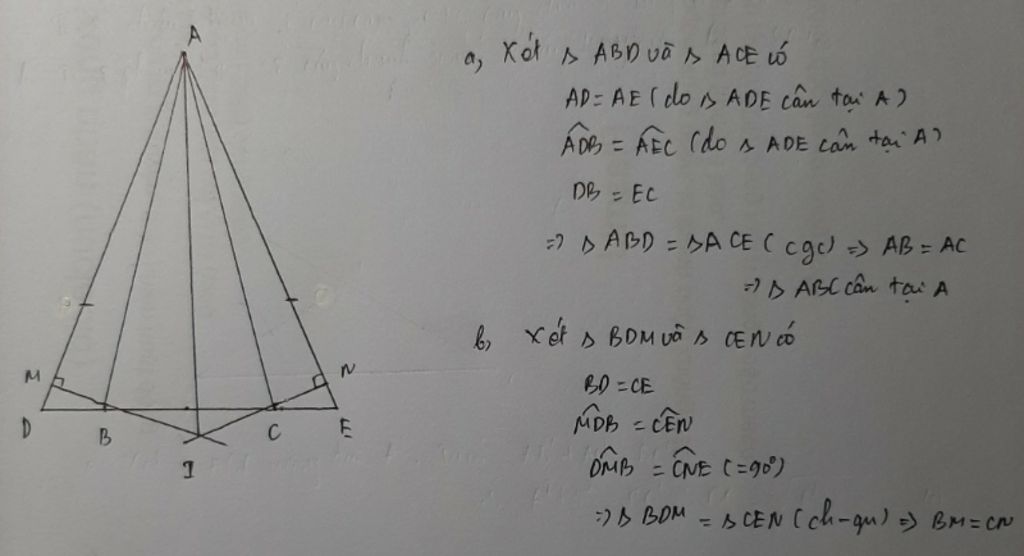 A
M
N
D
B
C
E
I
a, Xét Δ ABD và Δ ACE có
AD = AE (do Δ ADE cân tại A)
\widehat{ADB} = \widehat{AEC} (do Δ ADE cân tại A)
DB = EC
=> Δ ABD = Δ ACE (cgc) => AB = AC
=> Δ ABC cân tại A
b, Xét Δ BDM và Δ CEN có
BD = CE
\widehat{MDB} = \widehat{CEN}
\widehat{DMB} = \widehat{CNE} (=90°)
=> Δ BDM = Δ CEN (ch-gn) => BM = CN